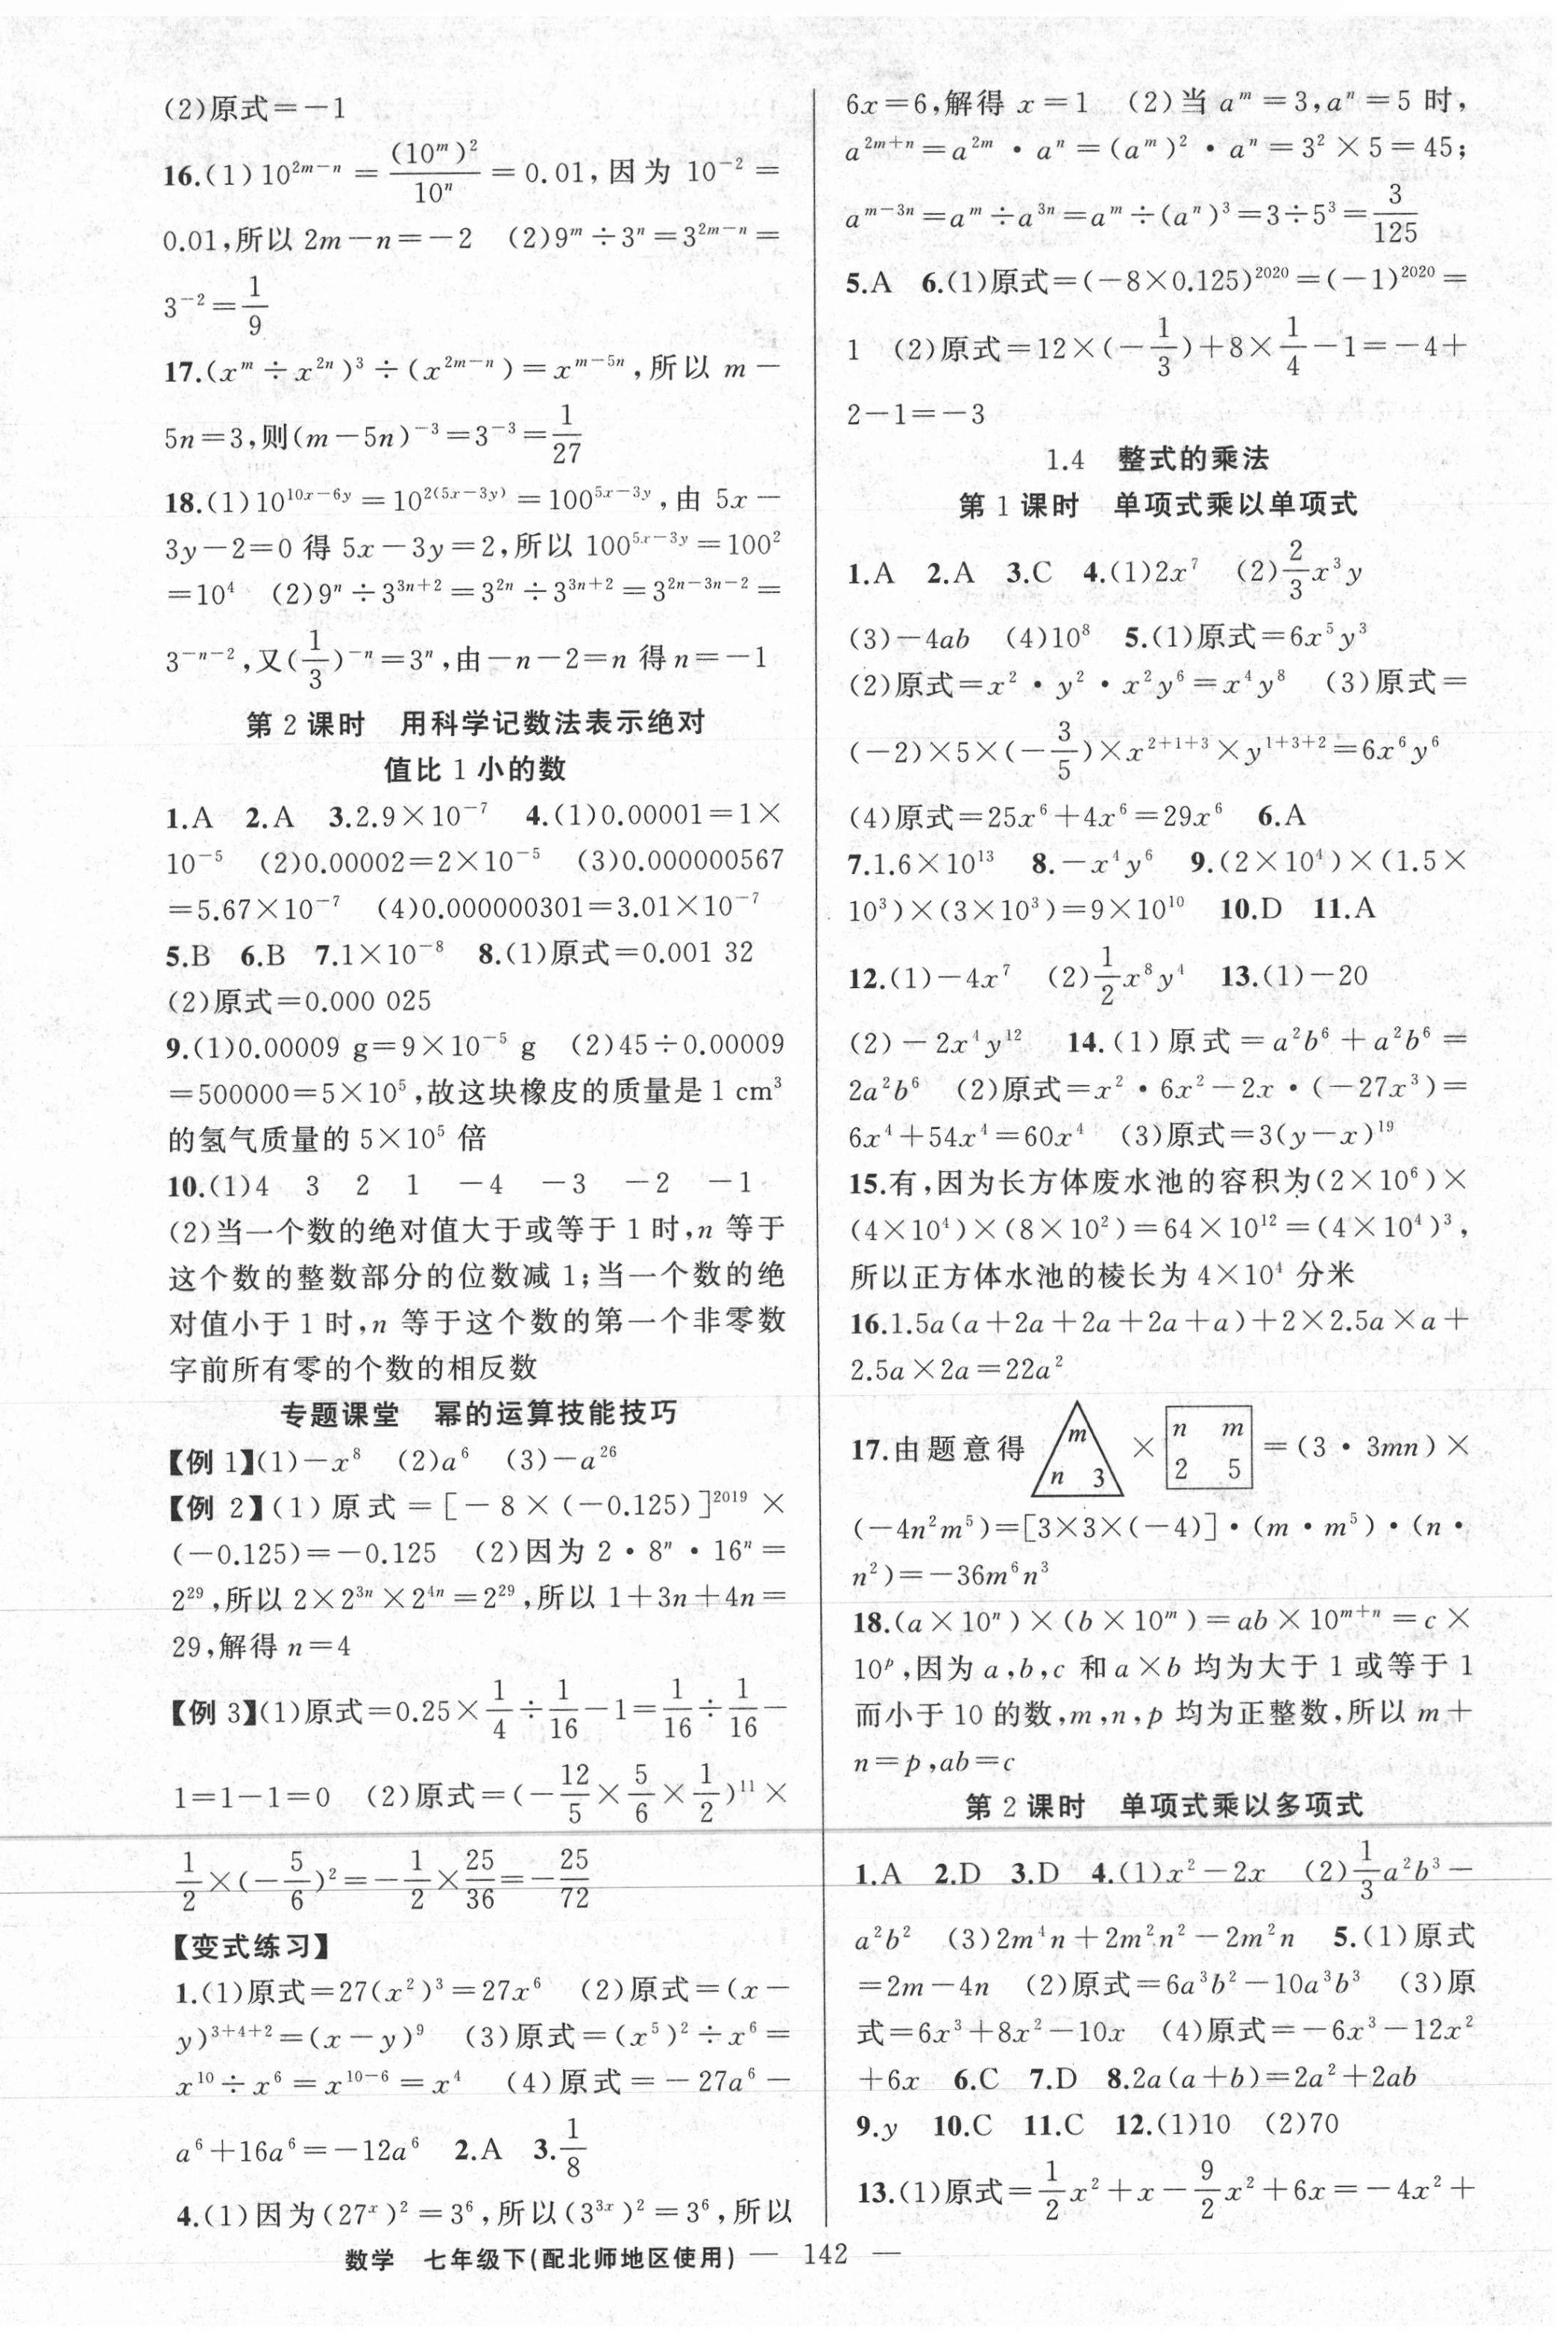 (2)原式=-1
16.(1)10^{2m-n}=\frac{(10^m)^2}{10^n}=0.01,因为 10^{-2}=
0.01,所以 2m-n=-2 (2)9^m÷3^n=3^{2m-n}=
3^{-2}=\frac{1}{9}
17.(x^m÷x^{2n})^3÷(x^{2m-n})=x^{m-5n},所以 m-
5n=3,则(m-5n)^{-3}=3^{-3}=\frac{1}{27}
18.(1)10^{10x-6y}=10^{2(5x-3y)}=100^{5x-3y},由 5x-
3y-2=0 得 5x-3y=2,所以 100^{5x-3y}=100^2
=10^4 (2)9^n÷3^{3n+2}=3^{2n}÷3^{3n+2}=3^{2n-3n-2}=
3^{-n-2},又(\frac{1}{3})^{-n}=3^n,由-n-2=n 得 n=-1
第 2 课时 用科学记数法表示绝对
值比 1 小的数
1.A 2.A 3.2.9×10^{-7} 4.(1)0.00001=1×
10^{-5} (2)0.00002=2×10^{-5} (3)0.000000567
=5.67×10^{-7} (4)0.000000301=3.01×10^{-7}
5.B 6.B 7.1×10^{-8} 8.(1)原式=0.001 32
(2)原式=0.000 025
9.(1)0.00009 g=9×10^{-5} g (2)45÷0.00009
=500000=5×10^5,故这块橡皮的质量是 1 cm^3
的氢气质量的 5×10^5 倍
10.(1)4 3 2 1 -4 -3 -2 -1
(2)当一个数的绝对值大于或等于 1 时,n 等于
这个数的整数部分的位数减 1;当一个数的绝
对值小于 1 时,n 等于这个数的第一个非零数
字前所有零的个数的相反数
专题课堂 幂的运算技能技巧
【例 1】(1)-x^8 (2)a^6 (3)-a^{26}
【例 2】(1)原式=[-8×(-0.125)]^{2019}×
(-0.125)=-0.125 (2)因为 2·8^n·16^n=
2^{29},所以 2×2^{3n}×2^{4n}=2^{29},所以 1+3n+4n=
29,解得 n=4
【例 3】(1)原式=0.25×\frac{1}{4}÷\frac{1}{16}-1=\frac{1}{16}÷\frac{1}{16}-
1=1-1=0 (2)原式=(-\frac{12}{5}×\frac{5}{6}×\frac{1}{2})^{11}×
\frac{1}{2}×(-\frac{5}{6})^2=-\frac{1}{2}×\frac{25}{36}=-\frac{25}{72}
【变式练习】
1.(1)原式=27(x^2)^3=27x^6 (2)原式=(x-
y)^{3+4+2}=(x-y)^9 (3)原式=(x^5)^2÷x^6=
x^{10}÷x^6=x^{10-6}=x^4 (4)原式=-27a^6-
a^6+16a^6=-12a^6 2.A 3.\frac{1}{8}
4.(1)因为(27^x)^2=3^6,所以(3^{3x})^2=3^6,所以
6x=6,解得 x=1 (2)当 a^m=3,a^n=5 时,
a^{2m+n}=a^{2m}·a^n=(a^m)^2·a^n=3^2×5=45;
a^{m-3n}=a^m÷a^{3n}=a^m÷(a^n)^3=3÷5^3=\frac{3}{125}
5.A 6.(1)原式=(-8×0.125)^{2020}=(-1)^{2020}=
1 (2)原式=12×(-\frac{1}{3})+8×\frac{1}{4}-1=-4+
2-1=-3
1.4 整式的乘法
第 1 课时 单项式乘以单项式
1.A 2.A 3.C 4.(1)2x^7 (2)\frac{2}{3}x^3y
(3)-4ab (4)10^8 5.(1)原式=6x^5y^3
(2)原式=x^2·y^2·x^2y^6=x^4y^8 (3)原式=
(-2)×5×(-\frac{3}{5})×x^{2+1+3}×y^{1+3+2}=6x^6y^6
(4)原式=25x^6+4x^6=29x^6 6.A
7.1.6×10^{13} 8.-x^4y^6 9.(2×10^4)×(1.5×
10^3)×(3×10^3)=9×10^{10} 10.D 11.A
12.(1)-4x^7 (2)\frac{1}{2}x^8y^4 13.(1)-20
(2)-2x^4y^{12} 14.(1)原式=a^2b^6+a^2b^6=
2a^2b^6 (2)原式=x^2·6x^2-2x·(-27x^3)=
6x^4+54x^4=60x^4 (3)原式=3(y-x)^{19}
15.有,因为长方体废水池的容积为(2×10^6)×
(4×10^4)×(8×10^2)=64×10^{12}=(4×10^4)^3,
所以正方体水池的棱长为 4×10^4 分米
16.1.5a(a+2a+2a+2a+a)+2×2.5a×a+
2.5a×2a=22a^2
17.由题意得 m n 3 × n m 2 5 =(3·3mn)×
(-4n^2m^5)=[3×3×(-4)]·(m·m^5)·(n·
n^2)=-36m^6n^3
18.(a×10^n)×(b×10^m)=ab×10^{m+n}=c×
10^p,因为 a,b,c 和 a×b 均为大于 1 或等于 1
而小于 10 的数,m,n,p 均为正整数,所以 m+
n=p,ab=c
第 2 课时 单项式乘以多项式
1.A 2.D 3.D 4.(1)x^2-2x (2)\frac{1}{3}a^2b^3-
a^2b^2 (3)2m^4n+2m^2n^2-2m^2n 5.(1)原式
=2m-4n (2)原式=6a^3b^2-10a^3b^3 (3)原
式=6x^3+8x^2-10x (4)原式=-6x^3-12x^2
+6x 6.C 7.D 8.2a(a+b)=2a^2+2ab
9.y 10.C 11.C 12.(1)10 (2)70
13.(1)原式=\frac{1}{2}x^2+x-\frac{9}{2}x^2+6x=-4x^2+
数学 七年级下(配北师地区使用) — 142 —